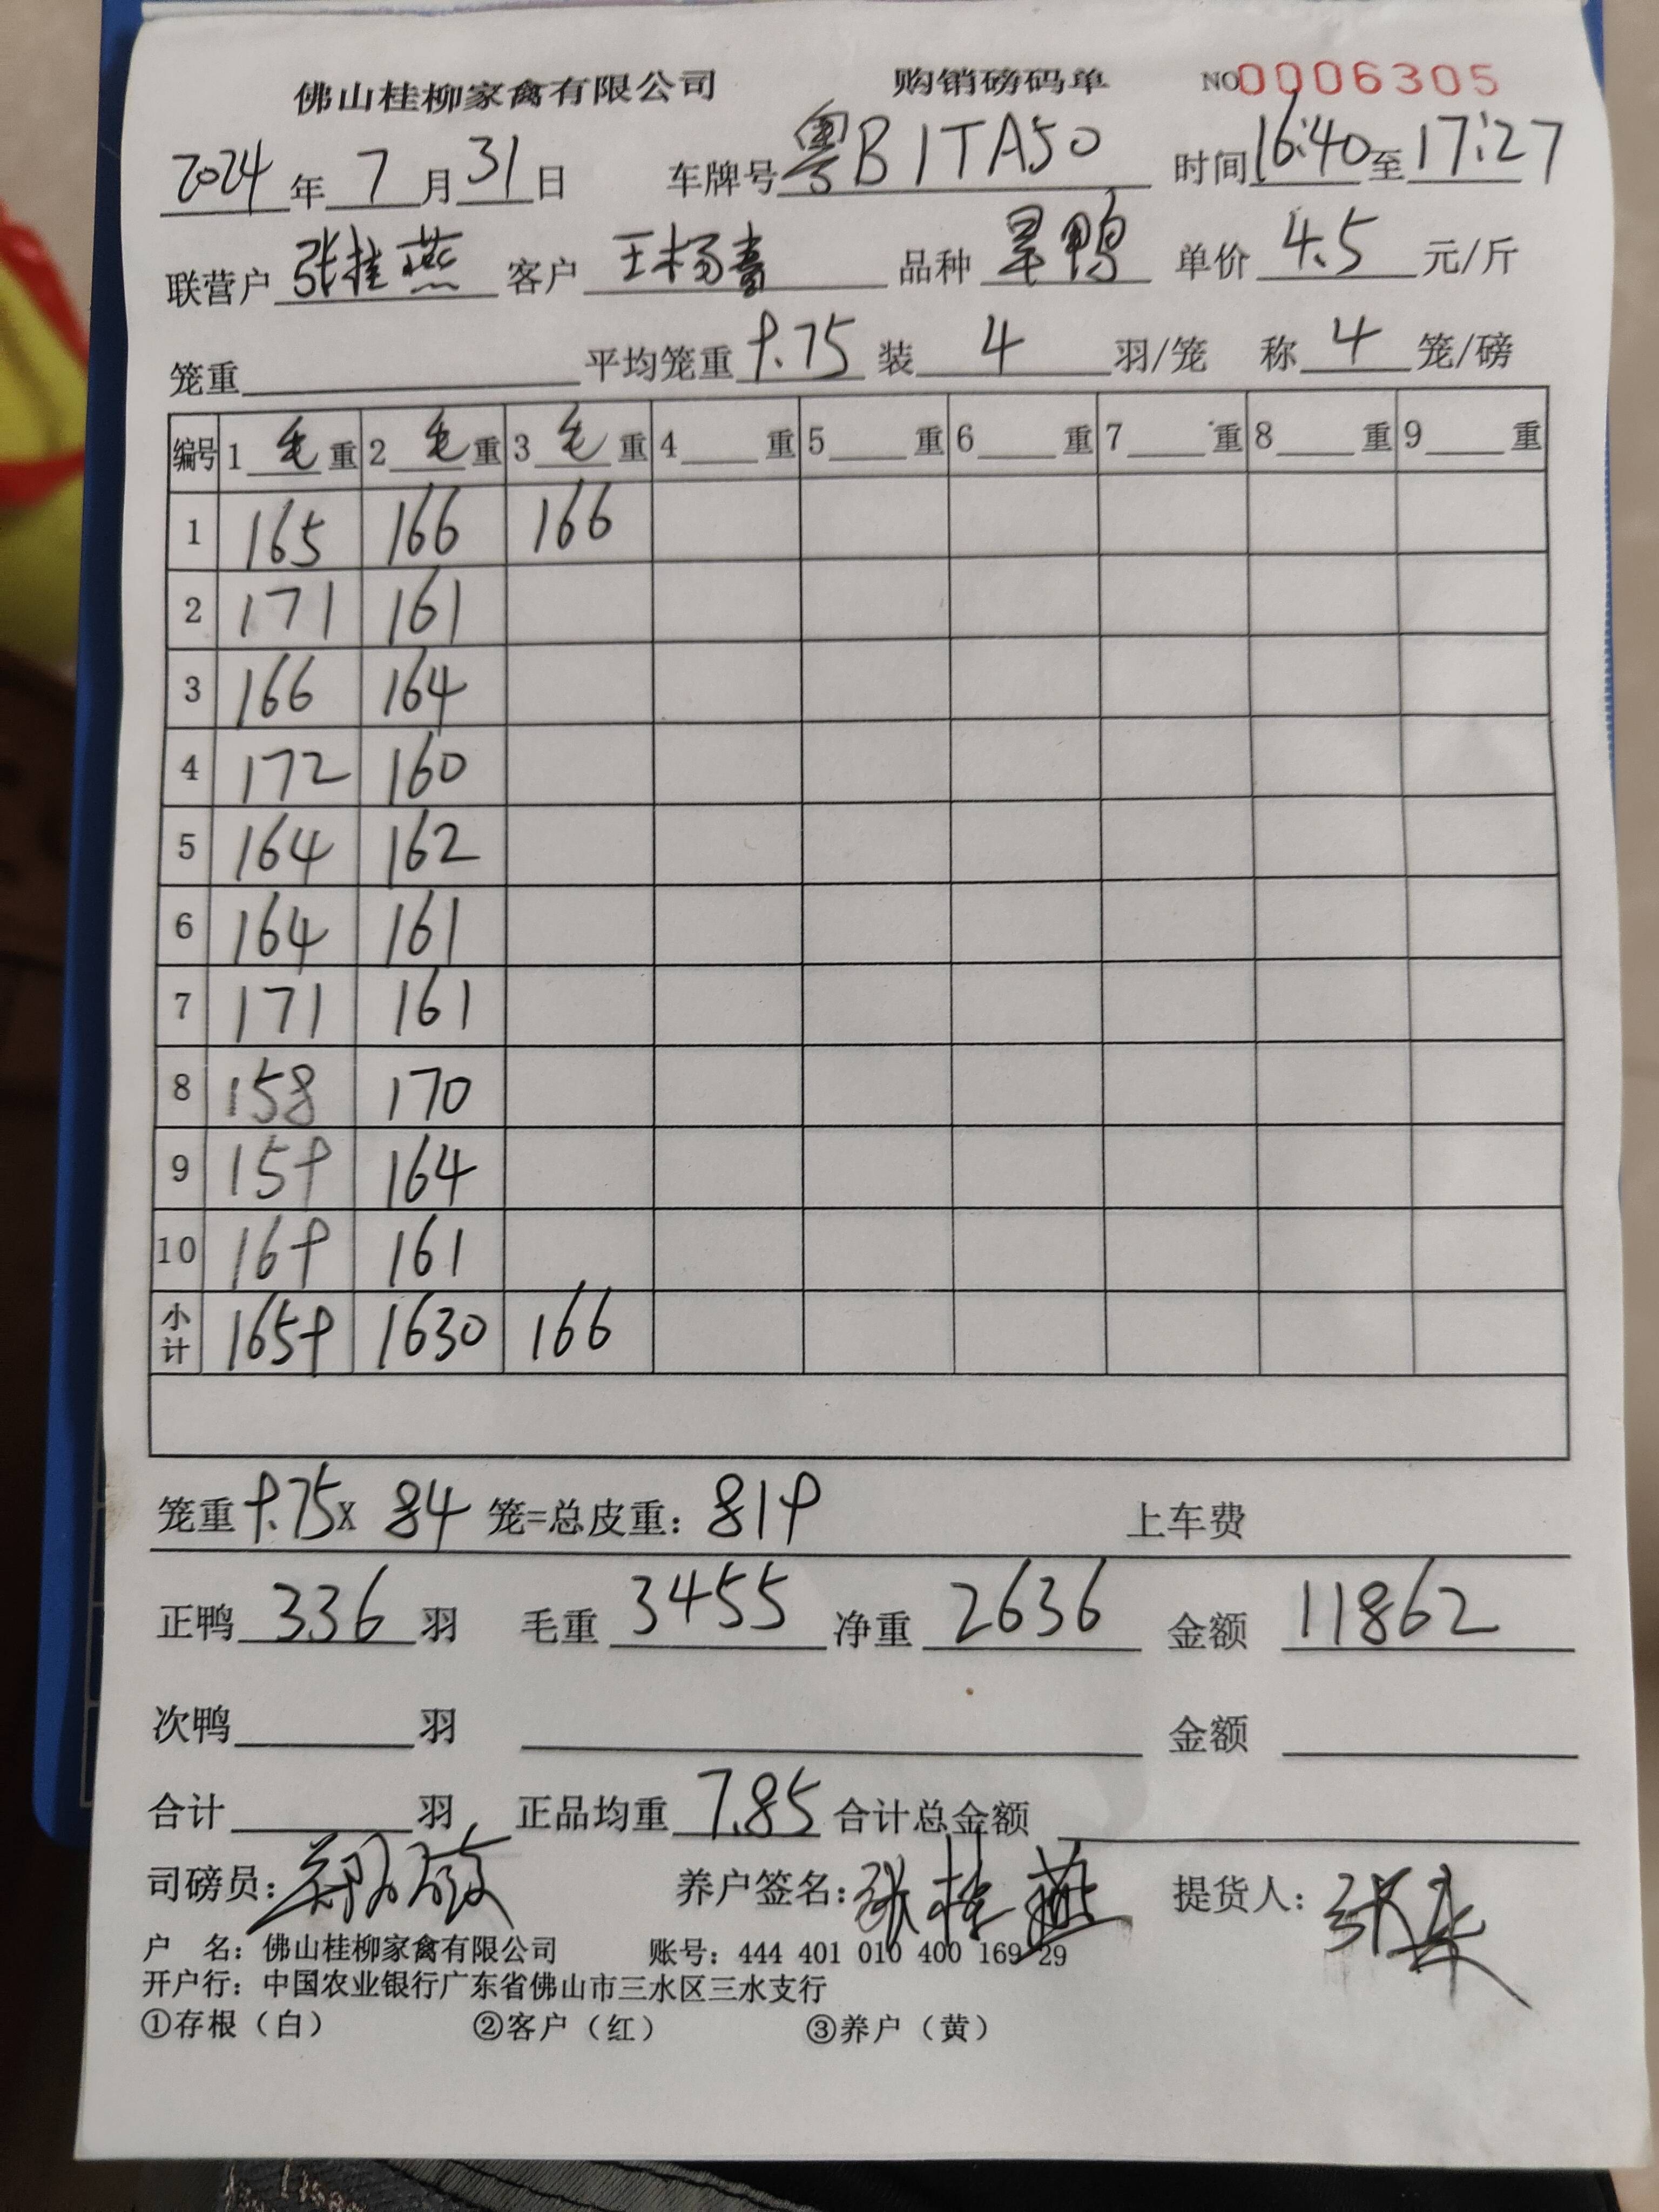 佛山桂柳家禽有限公司 购销磅码单 NO0006305
2024年7月31日 车牌号粤B1TA50 时间16:40至17:27
联营户张桂燕 客户王杨 品种旱鸭 单价4.5元/斤
笼重 平均笼重9.75装4羽/笼 称4笼/磅
编号 1毛重 2毛重 3毛重 4重 5重 6重 7重 8重 9重
1 165 166 166
2 171 161
3 166 164
4 172 160
5 164 162
6 164 161
7 171 161
8 158 170
9 159 164
10 169 161
小计 1659 1630 166
笼重9.75x84笼=总皮重：819 上车费
正鸭336羽 毛重3455净重2636 金额11862
次鸭 羽 金额
合计 羽 正品均重7.85合计总金额
司磅员： 养户签名：张桂燕 提货人：
户 名：佛山桂柳家禽有限公司 账号：444 401 010 400 169 29
开户行：中国农业银行广东省佛山市三水区三水支行
①存根（白） ②客户（红） ③养户（黄）